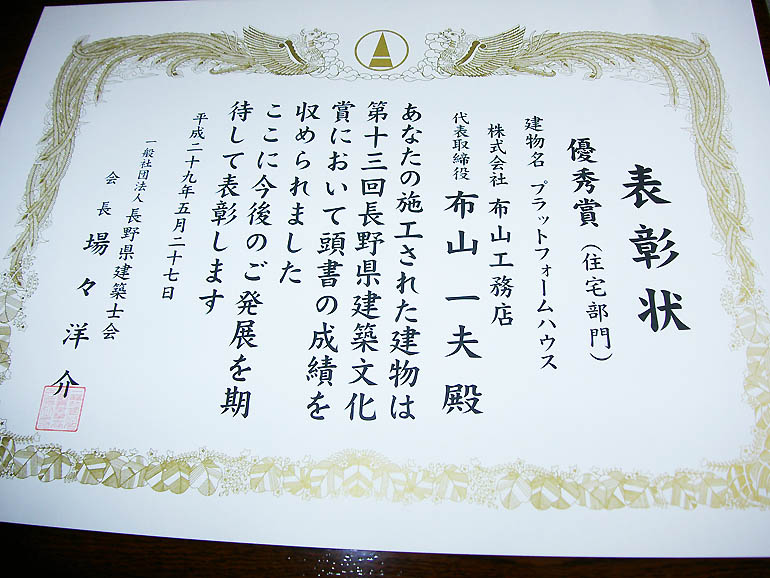 表彰状
優秀賞（住宅部門）
建物名 プラットフォームハウス
株式会社 布山工務店
代表取締役 布山 一夫 殿
あなたの施工された建物は
第十三回長野県建築文化
賞において頭書の成績を
収められました
ここに今後のご発展を期
待して表彰します
平成二十九年五月二十七日
一般社団法人 長野県建築士会
会長 場々洋介